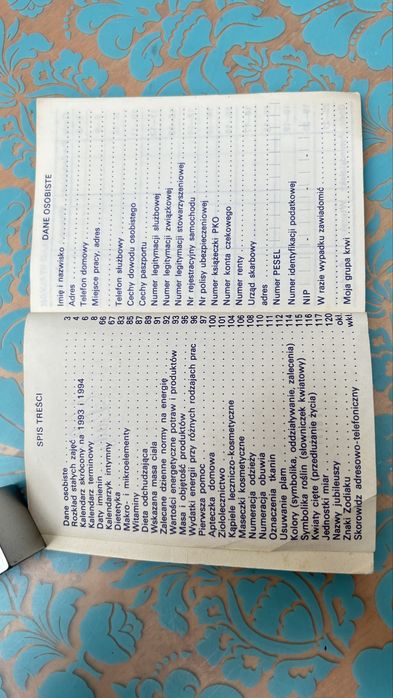 SPIS TREŚCI
Dane osobiste 3
Rozkład stałych zajęć 4
Kalendarz skrócony na 1993 i 1994 6
Kalendarz terminowy 8
Daty imienin 66
Kalendarzyk intymny 67
Dietetyka 83
Makro- i mikroelementy 85
Witaminy 87
Dieta odchudzająca 89
Wskazana masa ciała 91
Zalecane dzienne normy na energię 92
Wartości energetyczne potraw i produktów 93
Masa i objętość produktów 95
Wydatki energii przy różnych rodzajach prac 96
Pierwsza pomoc 97
Apteczka domowa 100
Ziołolecznictwo 101
Kąpiele leczniczo-kosmetyczne 104
Maseczki kosmetyczne 106
Numeracja odzieży 108
Numeracja obuwia 110
Oznaczenia tkanin 111
Usuwanie plam 112
Kolory (symbolika, oddziaływanie, zalecenia) 114
Symbolika roślin (słowniczek kwiatowy) 115
Kwiaty cięte (przedłużanie życia) 116
Jednostki miar 117
Nazwy jubileuszy 120
Znaki Zodiaku okł.
Skorowidz adresowo-telefoniczny wkł.
DANE OSOBISTE
Imię i nazwisko
Adres
Telefon domowy
Miejsce pracy, adres
Telefon służbowy
Cechy dowodu osobistego
Cechy paszportu
Numer legitymacji służbowej
Numer legitymacji związkowej
Numer legitymacji stowarzyszeniowej
Nr rejestracyjny samochodu
Nr polisy ubezpieczeniowej
Numer książeczki PKO
Numer konta czekowego
Numer renty
Urząd skarbowy
adres
Numer PESEL
Numer identyfikacji podatkowej
NIP
W razie wypadku zawiadomić
Moja grupa krwi